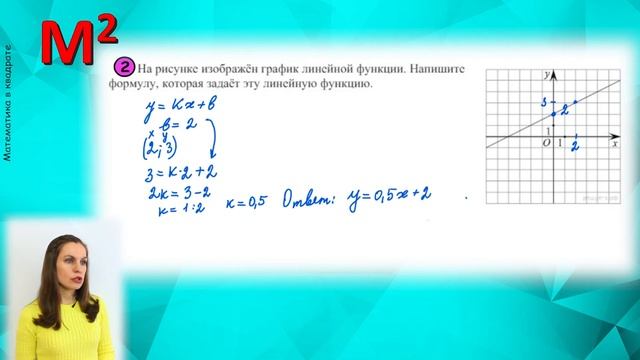 Математика в квадрате
М²
2 На рисунке изображён график линейной функции. Напишите
формулу, которая задаёт эту линейную функцию.
y = kx + b
b = 2
x y
(2; 3)
3 = k·2 + 2
2k = 3 - 2
k = 1:2
k = 0,5 Ответ: y = 0,5x + 2
y
3
2
1
0 1 2 x